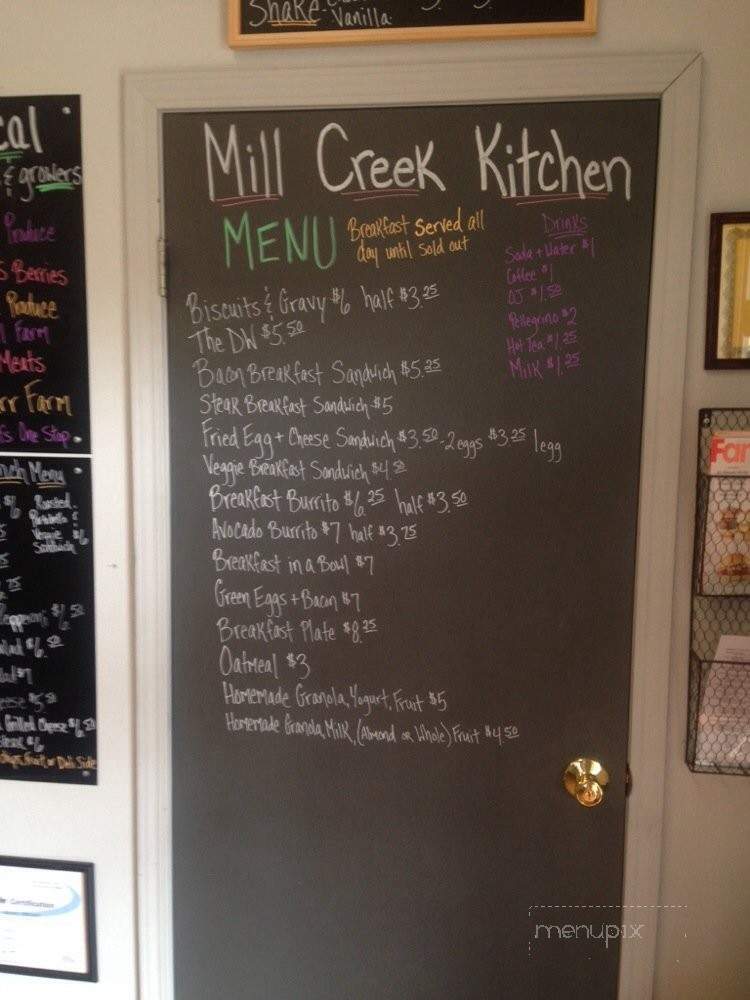 Shake
Vanilla
Mill Creek Kitchen
MENU
Breakfast served all
day until sold out
Biscuits & Gravy $6 half $3.25
The DW $5.50
Bacon Breakfast Sandwich $5.25
Steak Breakfast Sandwich $5
Fried Egg + Cheese Sandwich $3.50 - 2 eggs $3.25 1 egg
Veggie Breakfast Sandwich $4.50
Breakfast Burrito $6.25 half $3.50
Avocado Burrito $7 half $3.75
Breakfast in a Bowl $7
Green Eggs + Bacon $7
Breakfast Plate $8.25
Oatmeal $3
Homemade Granola, Yogurt, Fruit $5
Homemade Granola, Milk, (Almond or Whole) Fruit $4.50
Drinks
Soda + Water $1
Coffee $1
OJ $1.50
Pellegrino $2
Hot Tea $1.25
Milk $1.25
cal
& growers
Produce
s Berries
Produce
Farm
Meats
rr Farm
f's One Stop
nch Menu
Roasted
Veggie $6
Sandwich
Grilled Cheese
Fruit, or Deli Side
Certification
Far
menupix